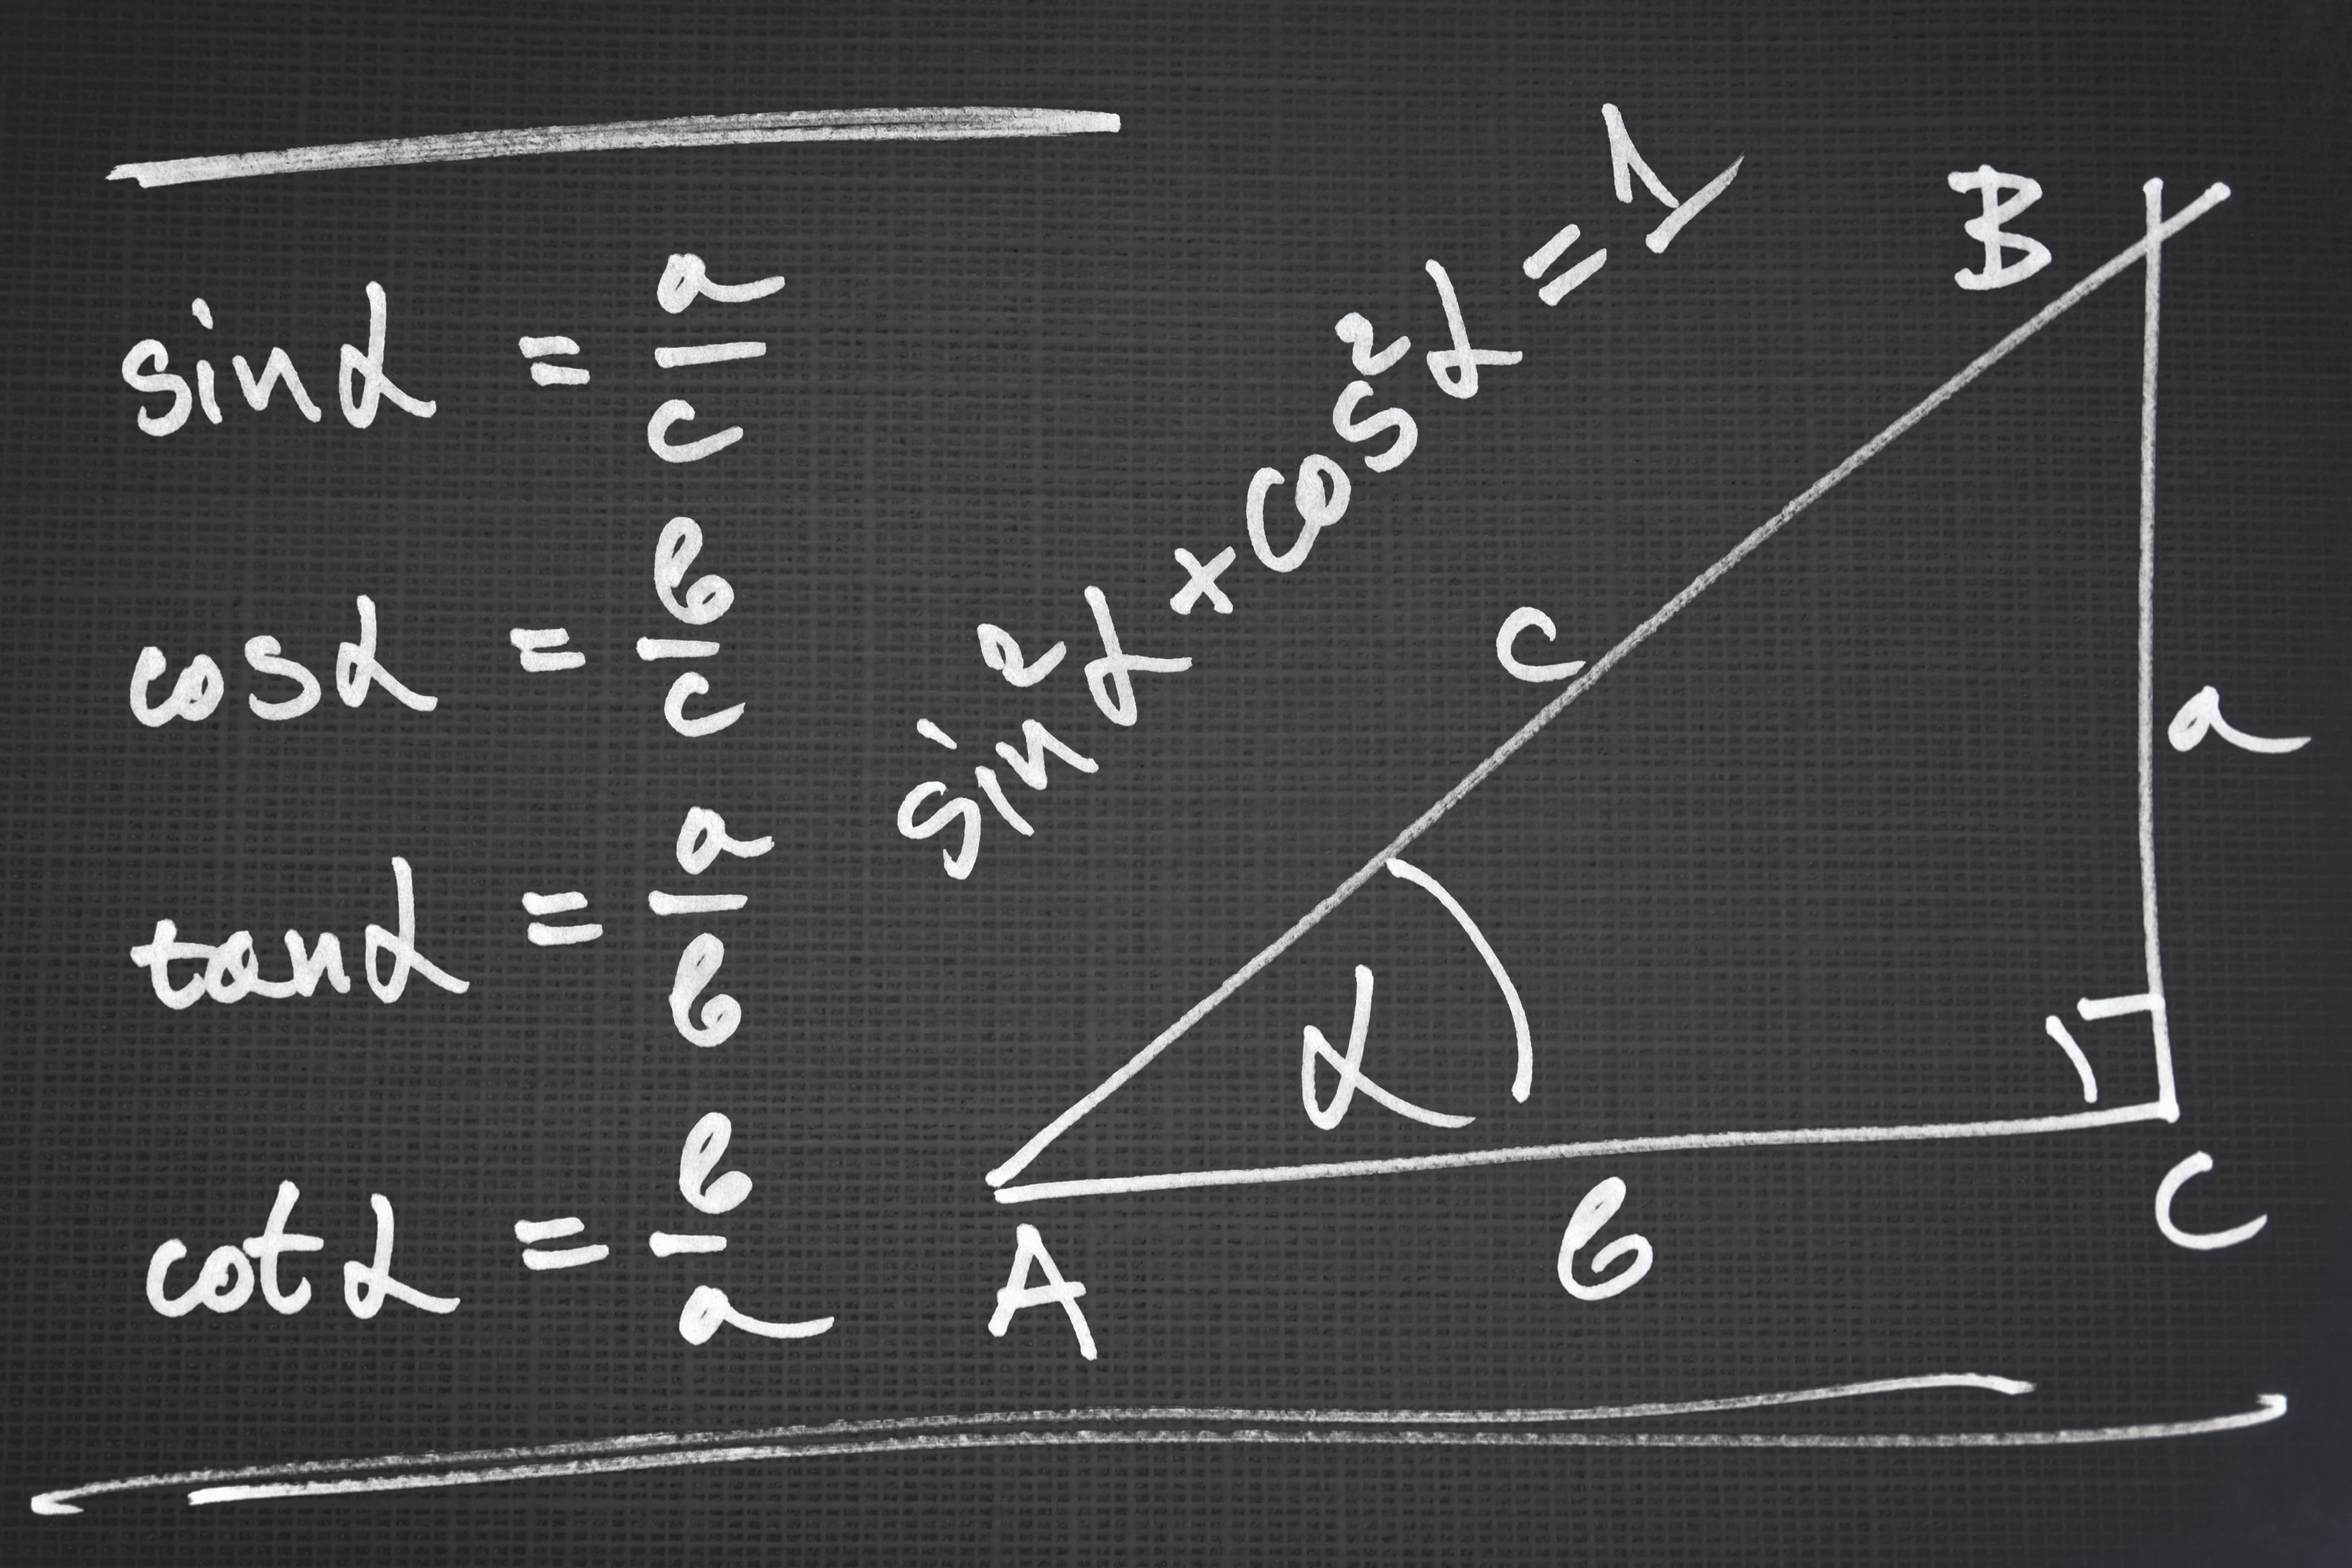 sin α = a/c
cos α = b/c
tan α = a/b
cot α = b/a
sin²α × cos²α = 1
B
c
a
α
A
b
C